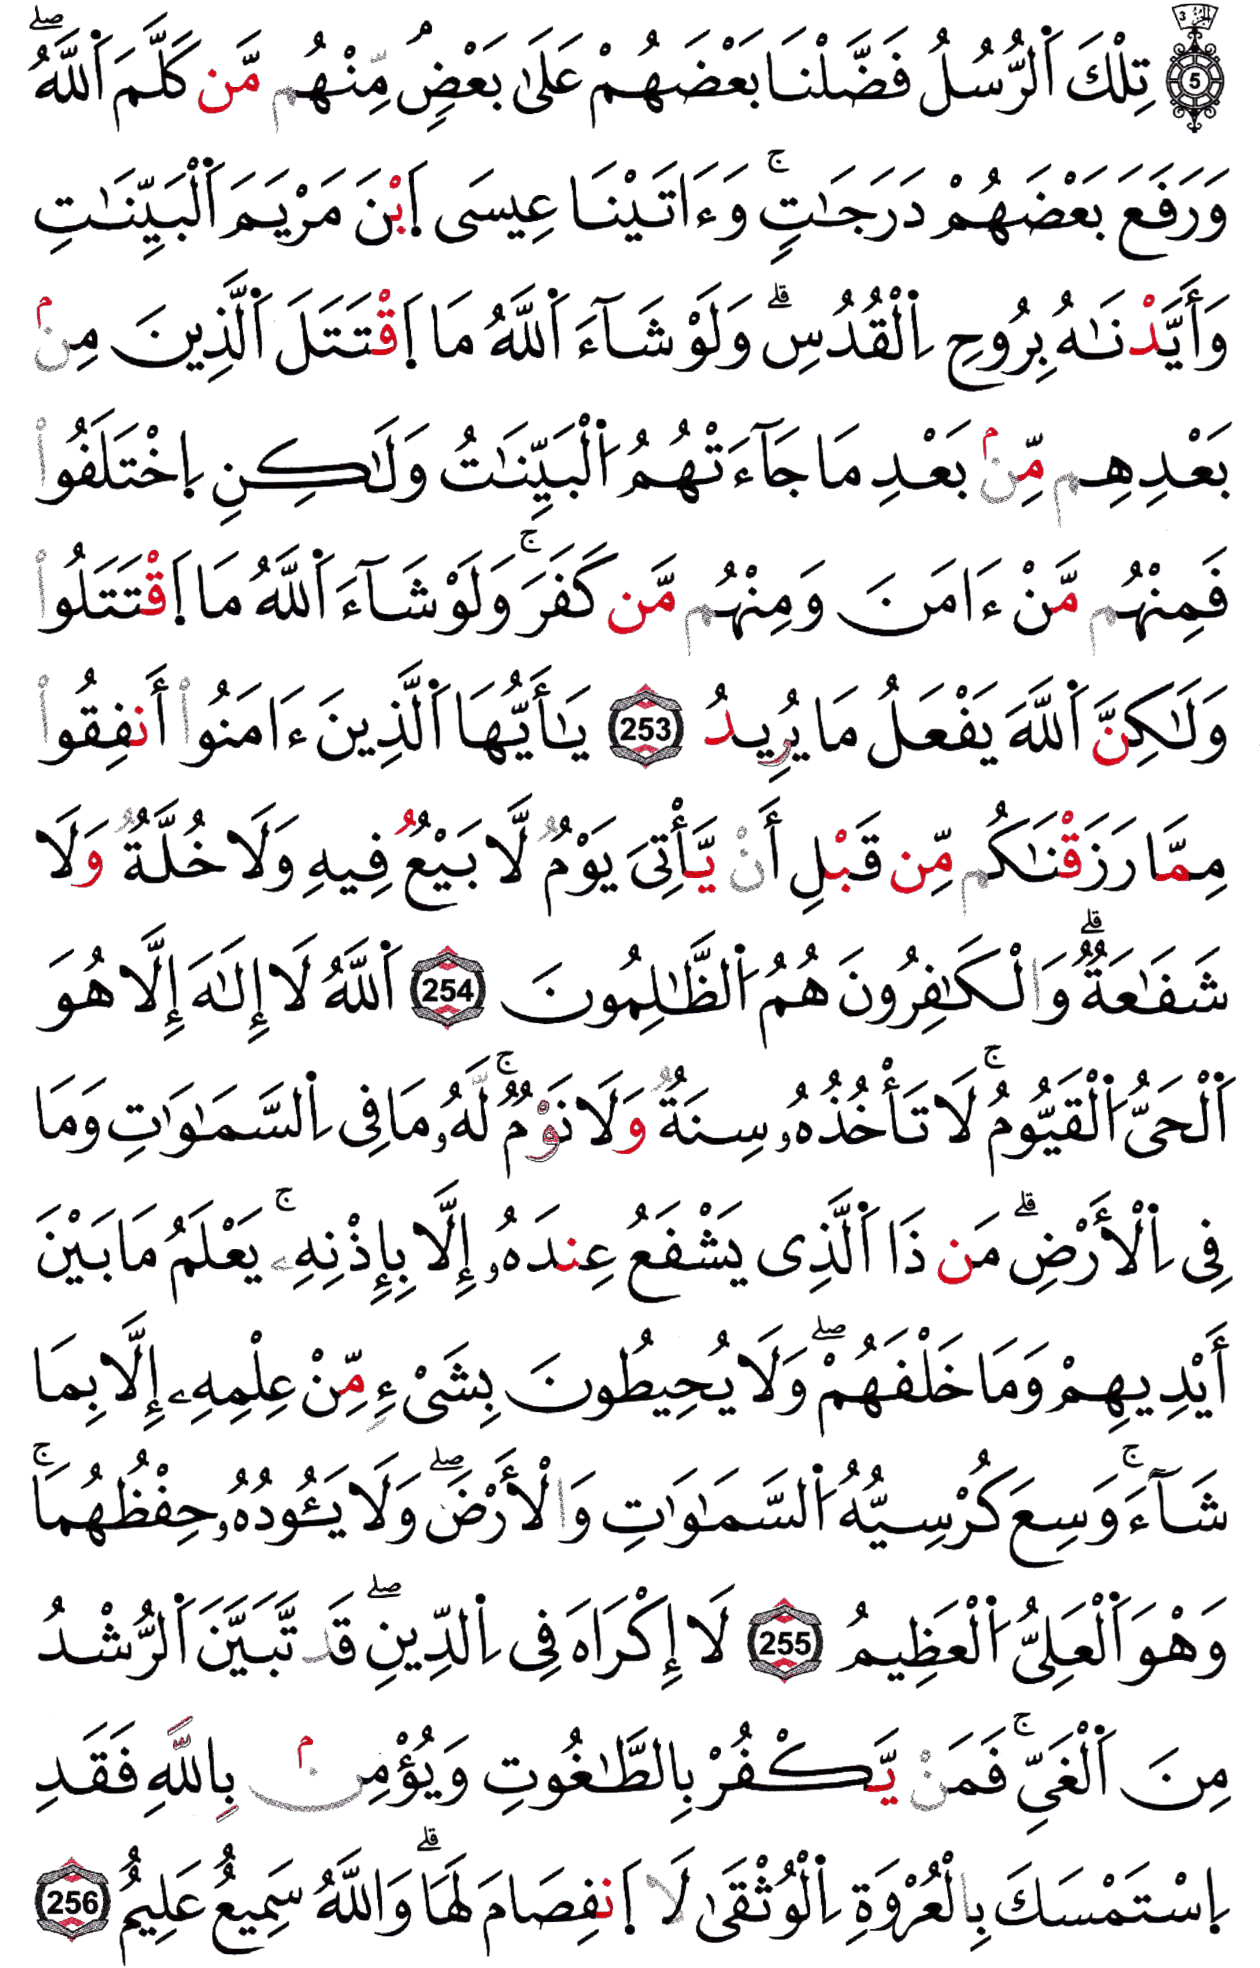 الجزء 3 5 تِلْكَ اَ۬لرُّسُلُ فَضَّلْنَا بَعْضَهُمْ عَلَىٰ بَعْضٖ مِّنْهُم مَّن كَلَّمَ اَ۬للَّهُۖ
وَرَفَعَ بَعْضَهُمْ دَرَجَٰتٖۚ وَءَاتَيْنَا عِيسَى اَ۪بْنَ مَرْيَمَ اَ۬لْبَيِّنَٰتِ
وَأَيَّدْنَٰهُ بِرُوحِ اِ۬لْقُدُسِۗ وَلَوْ شَآءَ اَ۬للَّهُ مَا اَ۪قْتَتَلَ اَ۬لَّذِينَ مِنۢ
بَعْدِهِم مِّنۢ بَعْدِ مَا جَآءَتْهُمُ اُ۬لْبَيِّنَٰتُ وَلَٰكِنِ اِ۪خْتَلَفُواْ
فَمِنْهُم مَّنْ ءَامَنَ وَمِنْهُم مَّن كَفَرَۚ وَلَوْ شَآءَ اَ۬للَّهُ مَا اَ۪قْتَتَلُواْ
وَلَٰكِنَّ اَ۬للَّهَ يَفْعَلُ مَا يُرِيدُ 253 يَٰأَيُّهَا اَ۬لَّذِينَ ءَامَنُواْ أَنفِقُواْ
مِمَّا رَزَقْنَٰكُم مِّن قَبْلِ أَنْ يَّأْتِىَ يَوْمٞ لَّا بَيْعٞ فِيهِ وَلَا خُلَّةٞ وَلَا
شَفَٰعَةٞۗ وَالْكَٰفِرُونَ هُمُ اُ۬لظَّٰلِمُونَ 254 اَ۬للَّهُ لَا إِلَٰهَ إِلَّا هُوَ
اَ۬لْحَىُّ اُ۬لْقَيُّومُۚ لَا تَأْخُذُهُۥ سِنَةٞ وَلَا نَوْمٞۚ لَّهُۥ مَا فِى اِ۬لسَّمَٰوَٰتِ وَمَا
فِى اِ۬لْأَرْضِۗ مَن ذَا اَ۬لَّذِى يَشْفَعُ عِندَهُۥ إِلَّا بِإِذْنِهِۦۚ يَعْلَمُ مَا بَيْنَ
أَيْدِيهِمْ وَمَا خَلْفَهُمْۖ وَلَا يُحِيطُونَ بِشَىْءٖ مِّنْ عِلْمِهِۦ إِلَّا بِمَا
شَآءَۚ وَسِعَ كُرْسِيُّهُ اُ۬لسَّمَٰوَٰتِ وَالْأَرْضَۖ وَلَا يَـُٔودُهُۥ حِفْظُهُمَاۚ
وَهْوَ اَ۬لْعَلِىُّ اُ۬لْعَظِيمُ 255 لَا إِكْرَاهَ فِى اِ۬لدِّينِۖ قَد تَّبَيَّنَ اَ۬لرُّشْدُ
مِنَ اَ۬لْغَىِّۚ فَمَنْ يَّكْفُرْ بِالطَّٰغُوتِ وَيُؤْمِنۢ بِاللَّهِ فَقَدِ
اِ۪سْتَمْسَكَ بِالْعُرْوَةِ اِ۬لْوُثْقَىٰ لَا اَ۪نفِصَامَ لَهَاۗ وَاللَّهُ سَمِيعٌ عَلِيمٌ 256